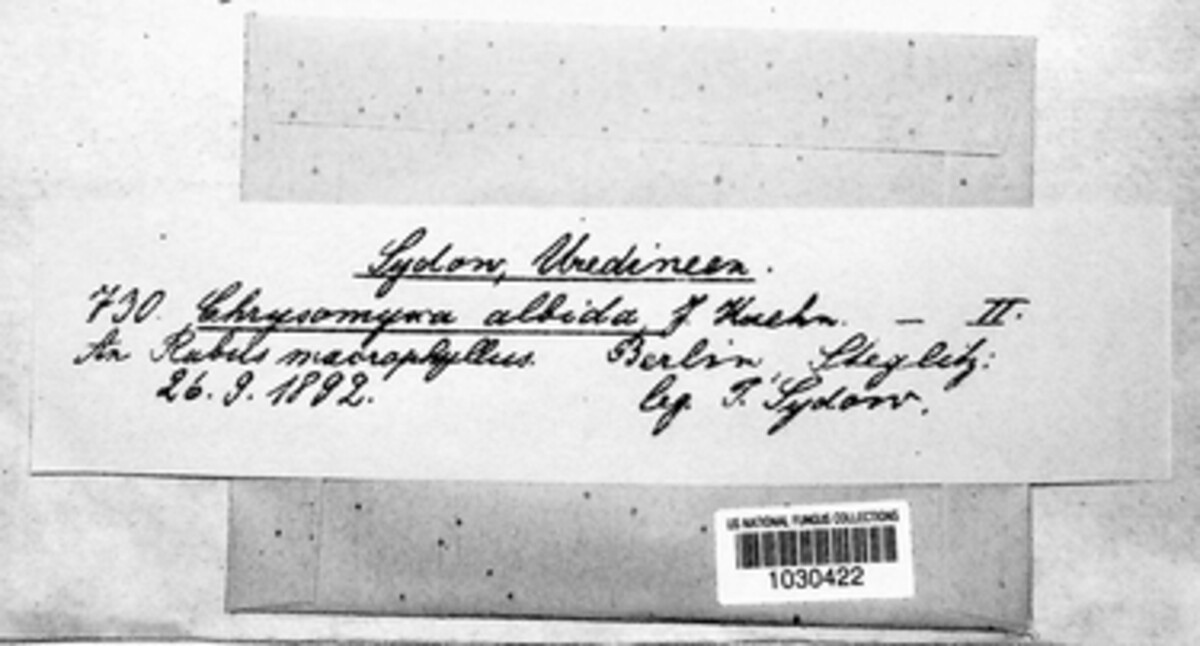 Sydow, Uredineen.
730. Chrysomyxa albida J. Kuehn. — II.
An Rubus macrophyllus. Berlin, Steglitz:
26. 9. 1892. leg. P. Sydow.
US NATIONAL FUNGUS COLLECTIONS
1030422